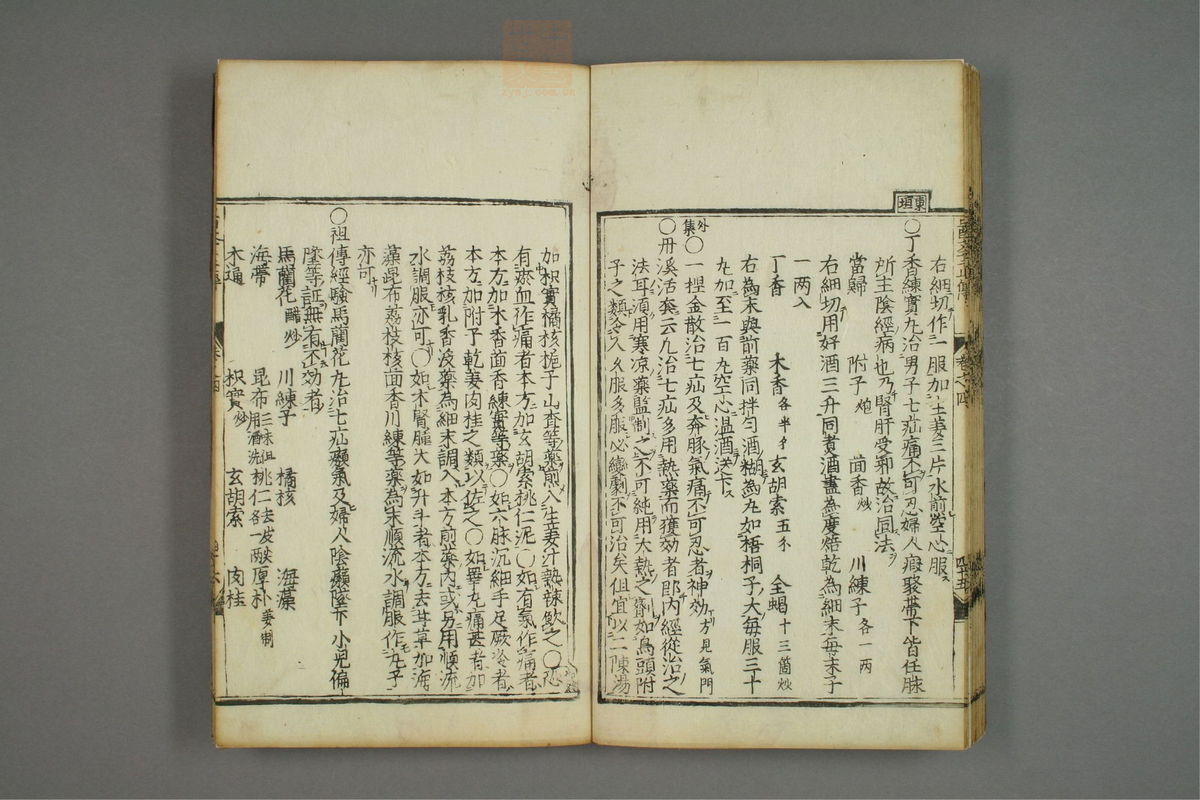 東垣
右細切作一服加生姜三片水煎空心服
〇丁香練實丸治男子七疝痛不可忍婦人瘕聚帶下皆任脉
所主陰經病也乃腎肝受邪故治同法
當歸 附子炮 茴香炒 川練子各一兩
右細切用好酒三升同煑酒盡為度焙乾為細末每末子
一兩入
丁香 木香各半戔 玄胡索五戔 全蝎十三箇炒
右為末與前藥同拌匀酒糊為丸如梧桐子大每服三十
丸加至一百丸空心温酒送下
外集〇一捏金散治七疝及奔豚氣痛不可忍者神効方見氣門
〇丹溪活套云凡治七疝多用熱藥而獲効者即内經從治之
法耳須用寒凉藥監制之不可純用大熱之劑如烏頭附
子之類令人久服多服必變劇不可治矣但宜以二陳湯
加枳實橘核梔子山査等藥煎入生姜汁熱辣飲之〇恐
有瘀血作痛者本方加玄胡索桃仁泥〇如有氣作痛者
本方加木香茴香練實等藥〇如六脉沉細手足厥冷者
本方加附子乾姜肉桂之類以佐之〇如睪丸痛甚者加
荔枝核乳香没藥為細末調入本方煎藥内或另用順流
水調服亦可〇如木腎腫大如升斗者本方去甘草加海
藻昆布荔枝核茴香川練等藥為末順流水調服作丸子
亦可
〇祖傳經驗馬藺花丸治七疝癩氣及婦人陰癩墜下小児偏
墜等証無有不効者
馬藺花醋炒 川練子 橘核 海藻
海帶 昆布三味俱用酒洗 桃仁去皮各一兩 厚朴姜制
木通 枳實炒 玄胡索 肉桂